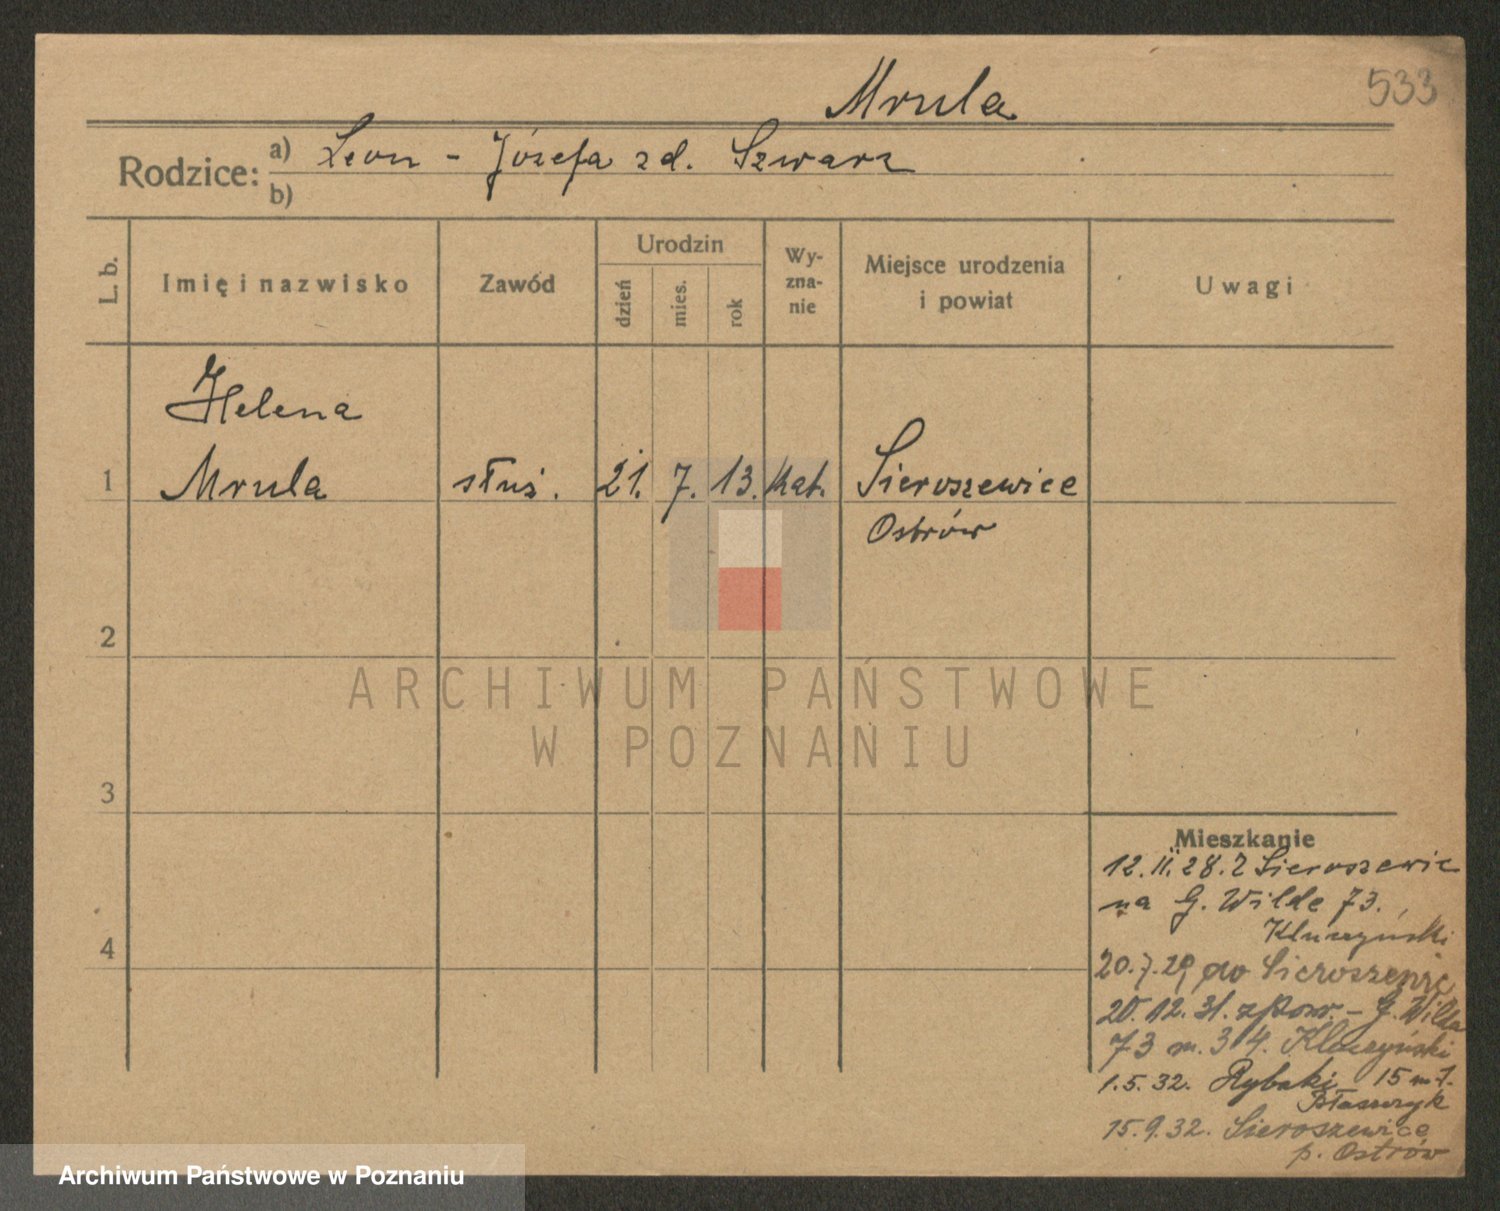 533
Mrula
Rodzice: a) Leon - Józefa zd. Szwarz
b)
L. b.
Imię i nazwisko
Zawód
Urodzin
dzień
mies.
rok
Wy-
zna-
nie
Miejsce urodzenia
i powiat
Uwagi
Helena
1 Mrula służ. 21. 7. 13. Kat. Sieroszewice
Ostrów
2
ARCHIWUM PAŃSTWOWE
W POZNANIU
3
4
Mieszkanie
12.II.28. z Sieroszewic
na G. Wilde 73.
Kluczyński
20.7.29 do Sieroszewic
20.12.31. z pow. - G. Wilda
73 m. 34. Kluczyński
1.5.32. Rybaki 15 m 1.
Błaszczyk
15.9.32. Sieroszewice
p. Ostrów
Archiwum Państwowe w Poznaniu